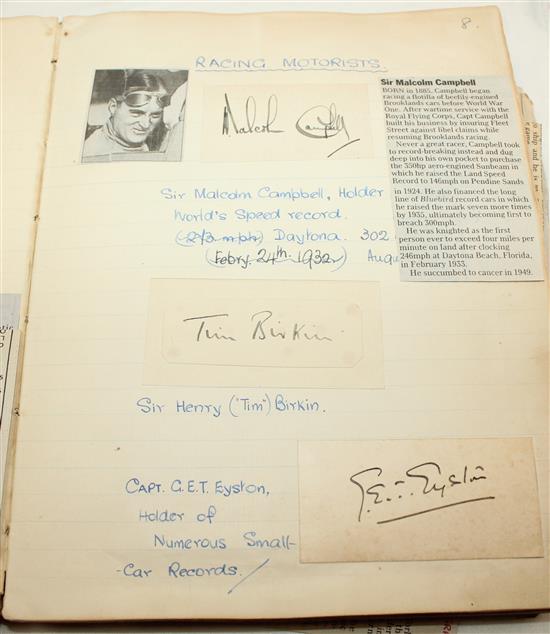 8.
RACING MOTORISTS.
Malcolm Campbell
Sir Malcolm Campbell
BORN in 1885, Campbell began
racing a flotilla of beefily-engined
Brooklands cars before World War
One. After wartime service with the
Royal Flying Corps, Capt Campbell
built his business by insuring Fleet
Street against libel claims while
resuming Brooklands racing.
Never a great racer, Campbell took
to record-breaking instead and dug
deep into his own pocket to purchase
the 350hp aero-engined Sunbeam in
which he raised the Land Speed
Record to 146mph on Pendine Sands
in 1924. He also financed the long
line of Bluebird record cars in which
he raised the mark seven more times
by 1935, ultimately becoming first to
breach 300mph.
He was knighted as the first
person ever to exceed four miles per
minute on land after clocking
246mph at Daytona Beach, Florida,
in February 1933.
He succumbed to cancer in 1949.
Sir Malcolm Campbell, Holder
World's Speed record.
Daytona. 302
(Febry. 24th. 1932) Augu
Tim Birkin.
Sir Henry ("Tim") Birkin.
CAPT. G.E.T. Eyston,
Holder of
Numerous Small-
-Car Records.
G.E.T. Eyston